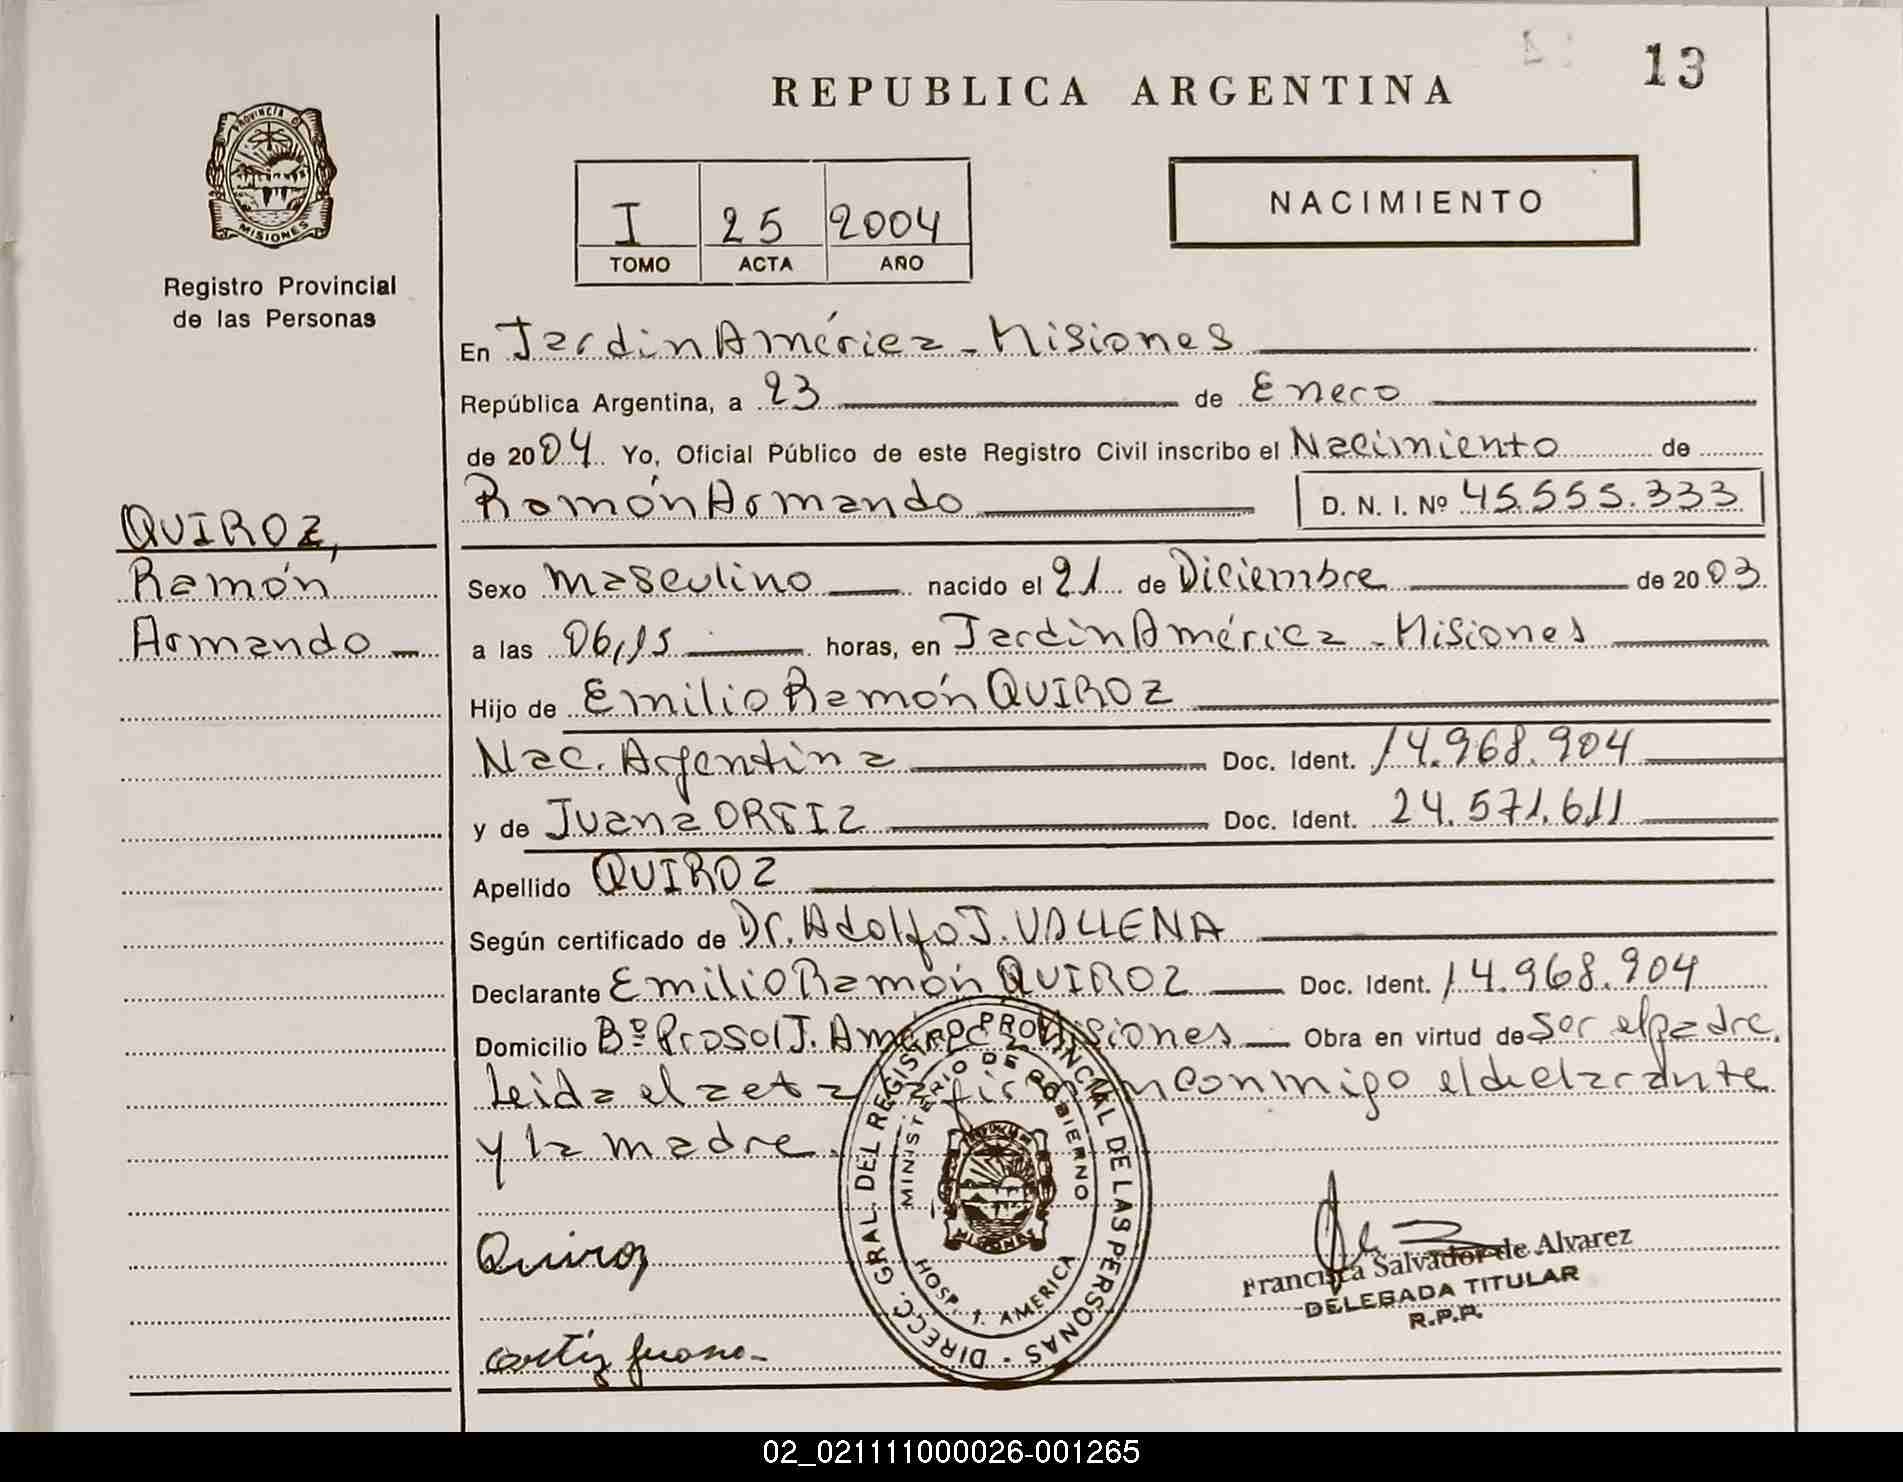 13
REPUBLICA ARGENTINA
PROVINCIA D
MISIONES
Registro Provincial
de las Personas
I 25 2004
TOMO ACTA AÑO
NACIMIENTO
En Jardin América - Misiones
República Argentina, a 23 de Enero
de 2004. Yo, Oficial Público de este Registro Civil inscribo el Nacimiento de
Ramón Armando D. N. I. Nº 45.555.333
QUIROZ,
Ramón
Armando
Sexo masculino nacido el 21 de Diciembre de 2003.
a las 06,15 horas, en Jardin América - Misiones
Hijo de Emilio Ramón QUIROZ
Nac. Argentina Doc. Ident. 14.968.904
y de Juana ORTIZ Doc. Ident. 24.571.611
Apellido QUIROZ
Según certificado de Dr. Adolfo J. VALLENA
Declarante Emilio Ramón QUIROZ Doc. Ident. 14.968.904
Domicilio Bº Prosol J. América Misiones Obra en virtud de ser el padre.
Leida el acta la firman conmigo el declarante
y la madre.
DIRECC. GRAL. DEL REGISTRO PROVINCIAL DE LAS PERSONAS
MINISTERIO DE GOBIERNO
MISIONES
HOSP. J. AMERICA
Quiroz
Francisca Salvador de Alvarez
DELEGADA TITULAR
R.P.P.
ortiz juana
02_021111000026-001265